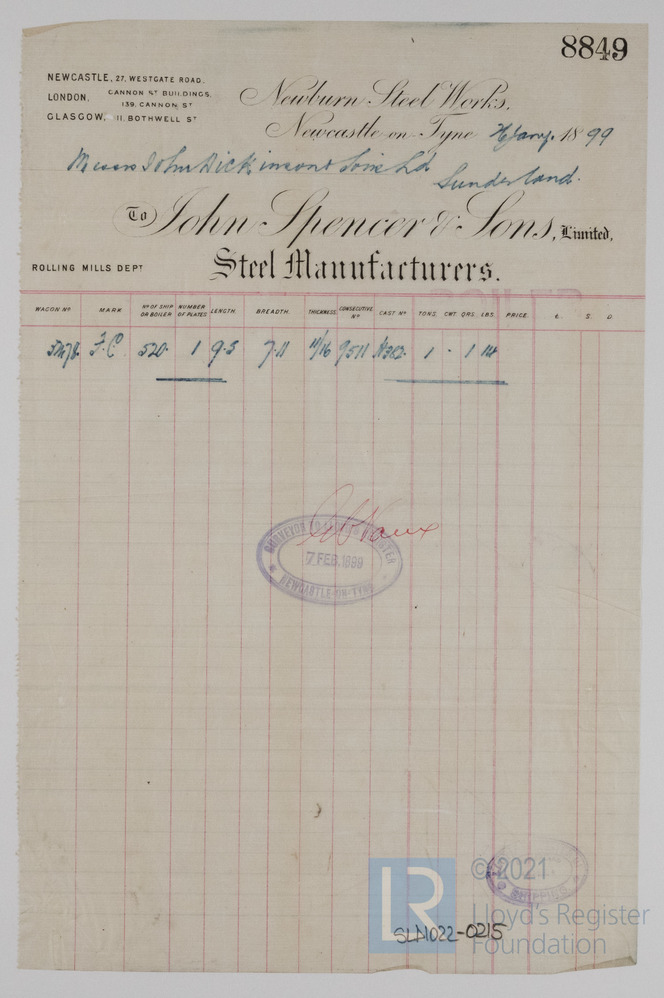 8849
NEWCASTLE, 27, WESTGATE ROAD.
LONDON, CANNON ST BUILDINGS,
139, CANNON ST
GLASGOW, 11, BOTHWELL ST
Newburn Steel Works,
Newcastle-on-Tyne Jany. 1899
Messrs John Dickinson & Sons Ld
Sunderland.
To John Spencer & Sons, Limited,
Steel Manufacturers.
ROLLING MILLS DEPT
WAGON No MARK No OF SHIP OR BOILER NUMBER OF PLATES LENGTH. BREADTH. THICKNESS CONSECUTIVE No CAST No TONS. CWT. QRS. LBS. PRICE. £. S. D.
F.C. 520. 1 9.5 7.11 11/16 9511 N382. 1 . 1 14
SURVEYORS TO LLOYD'S REGISTER
7 FEB. 1899
NEWCASTLE-ON-TYNE
SHIPPING
LR
© 2021
Lloyd's Register
Foundation
SLN1022-0215